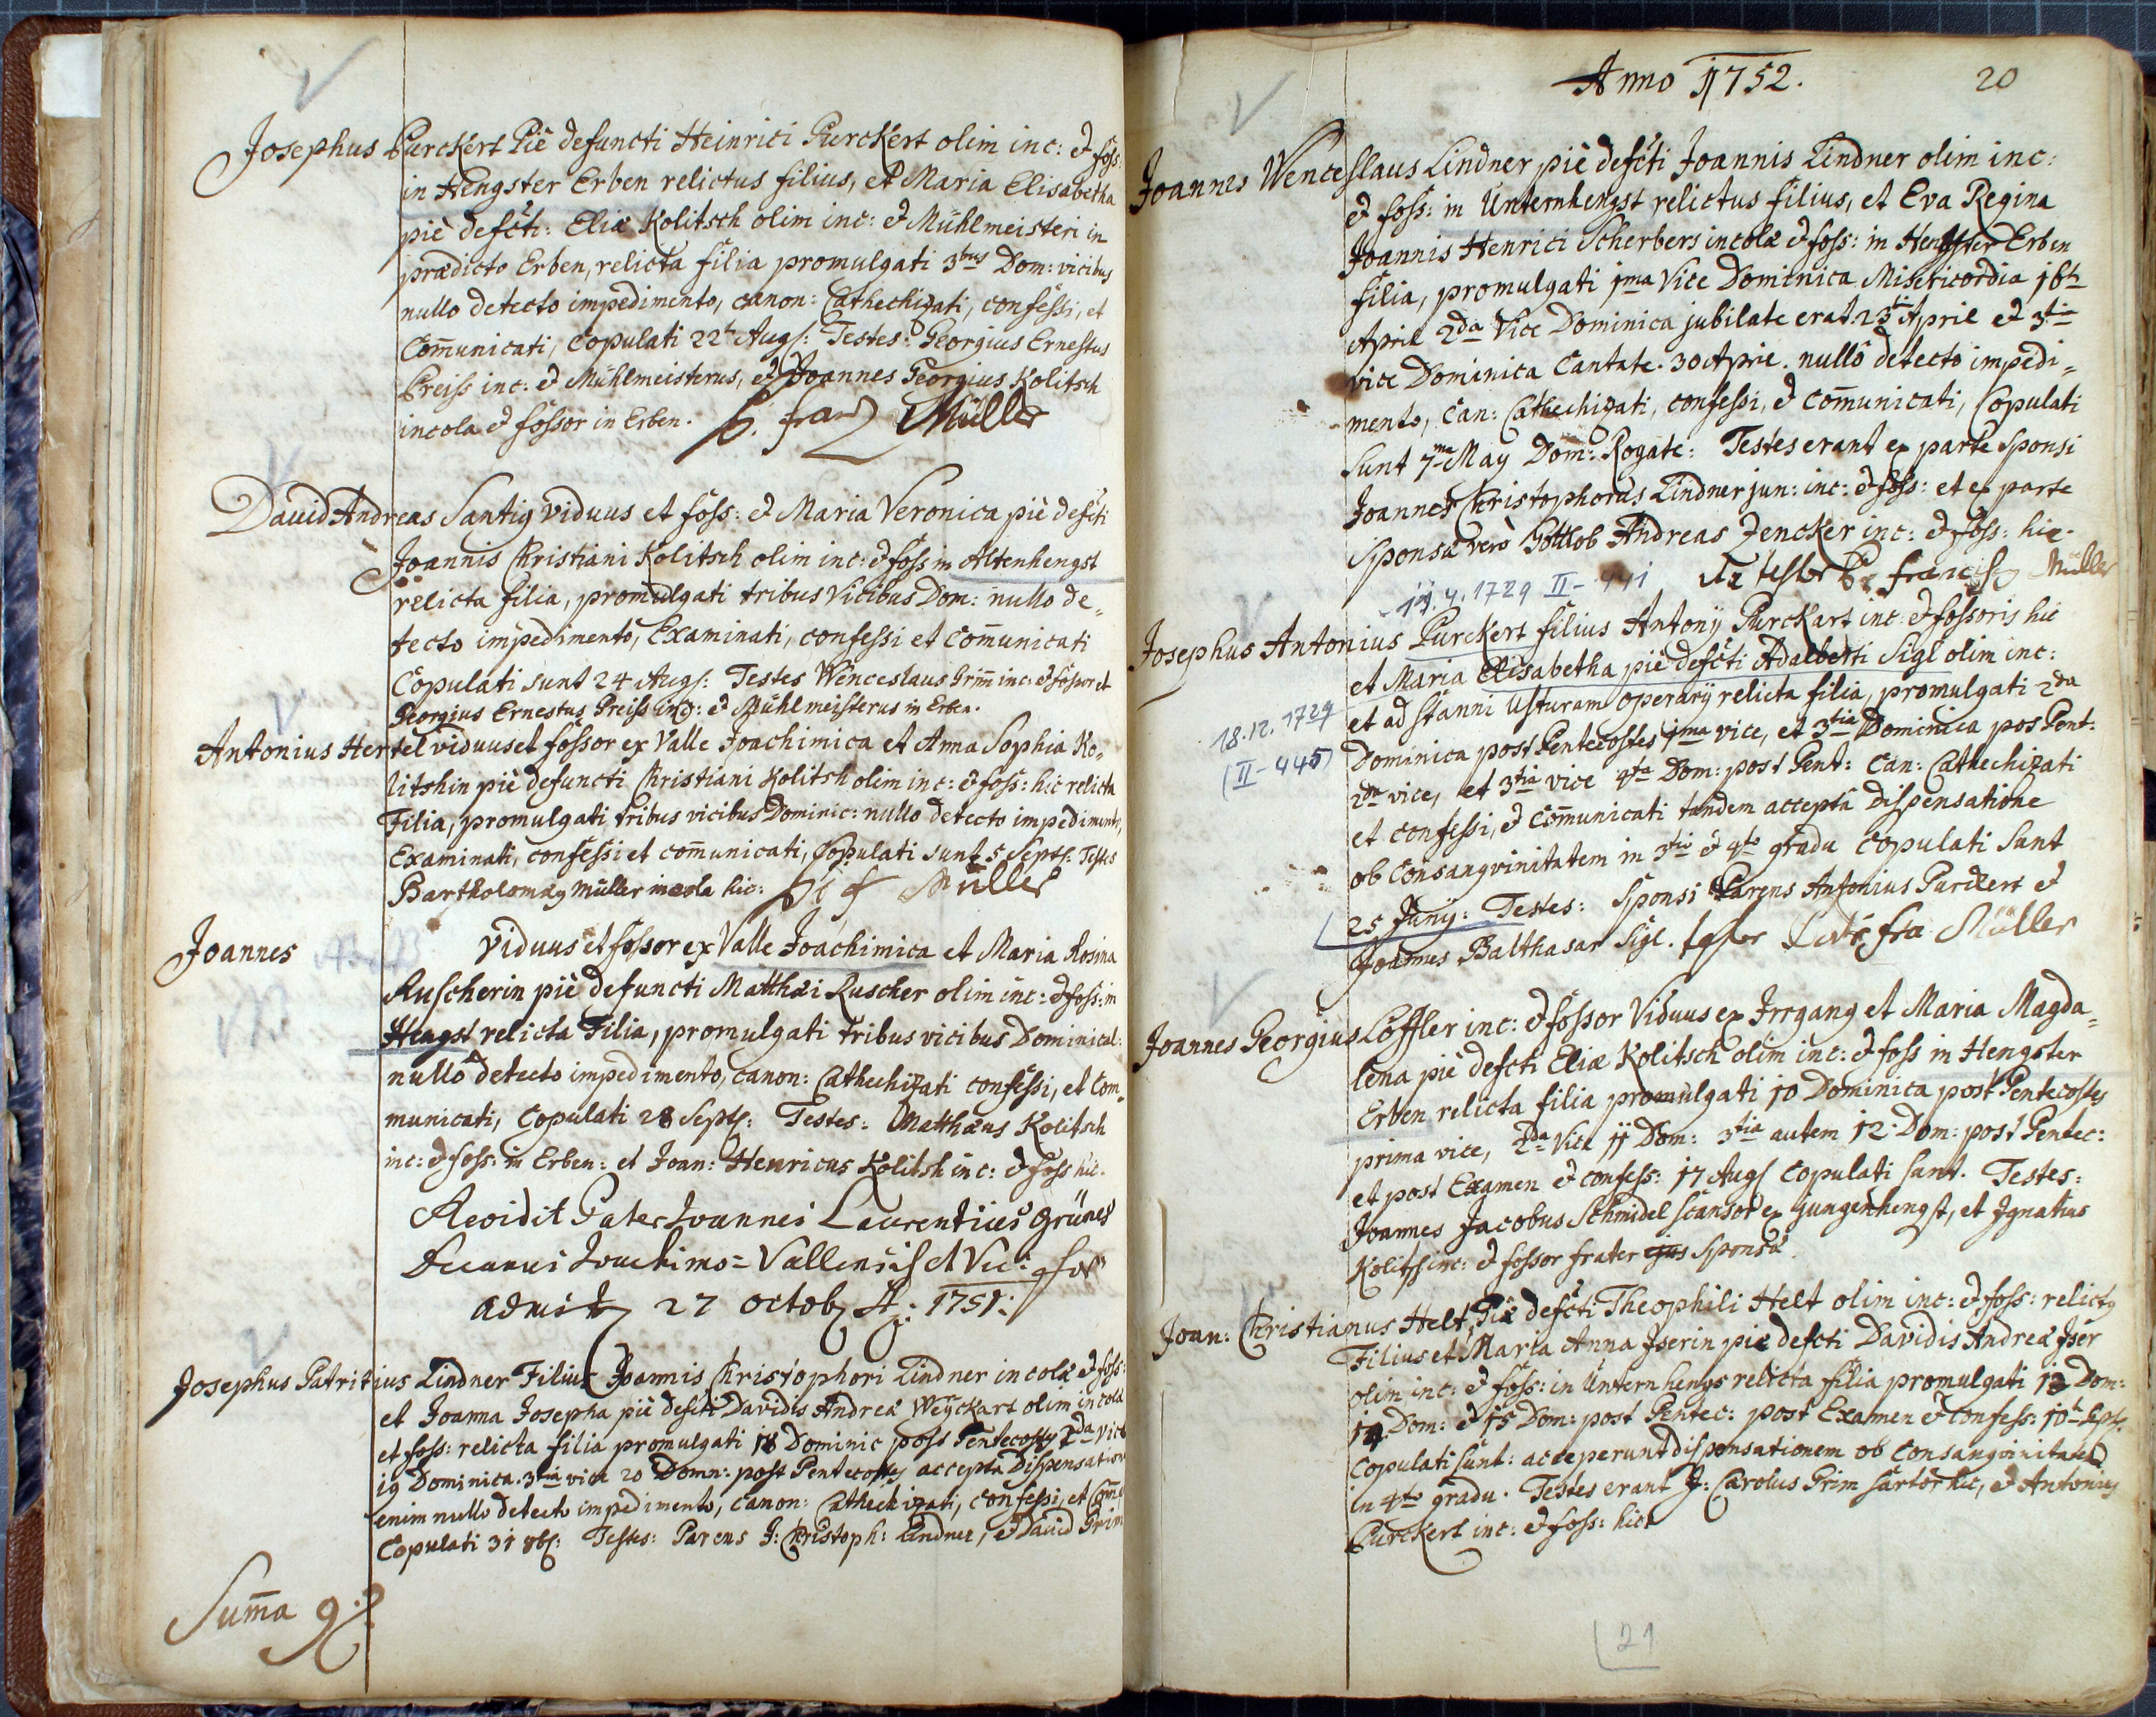 Josephus Purckert Piè defuncti Heinrici Purckert olim inc: & foss:
in Hengster Erben relictus filius, et Maria Elisabetha
piè defcti: Eliæ Kolitsch olim inc: & Mühlmeisteri in
prædicto Erben, relicta filia promulgati 3bus Dom: vicibus
nullo detecto impedimento, canon: Cathechizati, confessi, et
Com̄unicati, Copulati 22 Augs: Testes: Georgius Ernestus
Preiss inc: & Mühlmeisterus, et Joannes Georgius Kolitsch
incola & fossor in Erben. Müller
David Andreas Santig viduus et foss: & Maria Veronica piè defcti
Joannis Christiani Kolitsch olim inc: & foss in Altenhengst
relicta filia, promulgati tribus vicibus Dom: nullo de=
tecto impedimento, Examinati, confessi et Com̄unicati
Copulati sunt 24 Augs: Testes Wenceslaus Grim̄ inc: & fossor et
Georgius Ernestus Preiss inc: & Mühlmeisterus in Erben.
Antonius Hertel viduus et fossor ex Valle Joachimica et Anna Sophia Ko=
litshin piè defuncti Christiani Kolitsh olim inc: & foss: hic relicta
Filia, promulgati tribus vicibus Dominic: nullo detecto impedimento,
Examinati, confessi et com̄unicati, Copulati sunt 5 Septs: Testes
Bartholomæg Müller incola hic: Müller
Joannes viduus et fossor ex Valle Joachimica et Maria Rosina
Ruscherin piè defuncti Matthæi Ruscher olim inc: & foss: in
Hengst relicta Filia, promulgati tribus vicibus Dominical:
nullo detecto impedimento, canon: Cathechizati confessi, et Com=
municati, Copulati 28 Septs: Testes: Matthæus Kolitsch
inc: & foss: in Erben: et Joan: Henricus Kolitsh inc: & foss hic.
Revidit Pater Joannes Laurentius Grünes
Decanus Joachimo=Vallensis et Vic:
27 octob A: 1751:
Josephus Patritius Lindner Filius Joannis Christophori Lindner incolæ & foss:
et Joanna Josepha piè defcti Davidis Andreæ Weyckart olim incolæ
et foss: relicta filia promulgati 18 Dominic post Pentecostes 2da vice
19 Dominica. 3tia vice 20 Domn: post Pentecostes accepta Dispensatione
enim nullo detecto impedimento, canon: Cathechizati, confessi, et Com̄:
Copulati 31 8bs: Testes: Parens J: Christoph: Lindner, & David Grim
Sum̄a 9
Anno 1752.
20
Joannes Wenceslaus Lindner piè defcti Joannis Lindner olim inc:
& foss: in Unternhengst relictus filius, et Eva Regina
Joannis Henrici Scherbers incolæ & foss: in Hengster Erben
filia, promulgati 1ma Vice Dominica Misericordia 16
April 2da Vice Dominica jubilate erat 23 April & 3tia
vice Dominica Cantate. 30 Aprie. nullô detecto impedi=
mento, Can: Cathechizati, confessi, & com̄unicati, Copulati
sunt 7ma May Dom: Rogate: Testes erant ex parte Sponsi
Joannes Christophorus Lindner jun: inc: & foss: et ex parte
Sponsæ verò Gottlob Andreas Zencker inc: & foss: hic.
Francis Müller
4. 1729 II-441
Josephus Antonius Purckert filius Antonÿ Purckart inc: & fossoris hic
et Maria Elisabetha piè defcti Adalberti Sigl olim inc:
et ad stanni Usturam operarÿ relicta filia, promulgati 2da
Dominica post Pentecostes 1ma vice, et 3tia Dominica pos Pent:
2da vice, et 3tia vice 4ta Dom: post Pent: Can: Cathechizati
et confessi, & com̄unicati tandem acceptâ Dispensatione
ob Consangvinitatem in 3tio & 4to gradu Copulati sunt
25 Junÿ: Testes: Sponsi Parens Antonius Purckert &
Joannes Balthasar Sigl. Müller
18.12.1729
(II-445)
Joannes Georgius Löffler inc: & fossor Viduus ex Irrgang et Maria Magda=
lena piè defcti Eliæ Kolitsch olim inc: & foss in Hengster
Erben relicta filia promulgati 10 Dominica post Pentecostes
prima vice, 2da Vice 11 Dom: 3tia autem 12 Dom: post Pentec:
et post Examen & confess: 17 Augs Copulati sunt. Testes:
Joannes Jacobus Schmidel scansor ex jungenhengst, et Ignatius
Kolitsh inc: & fossor frater ejus Sponsæ.
Joan: Christianus Helt, Piè defcti Theophili Helt olim inc: & foss: relictg
Filius et Maria Anna Iserin piè defcti Davidis Andreæ Iser
olim inc: & foss: in Unternhengs relicta filia promulgati 13 Dom:
14 Dom: & 15 Dom: post Pentec: post Examen & confess: 10 Septs:
Copulati sunt: acceperunt dispensationem ob Consangvinitatem
in 4to gradu. Testes erant J: Carolus Grim sartor hic, & Antonius
Purckert inc: & foss: hic.
21